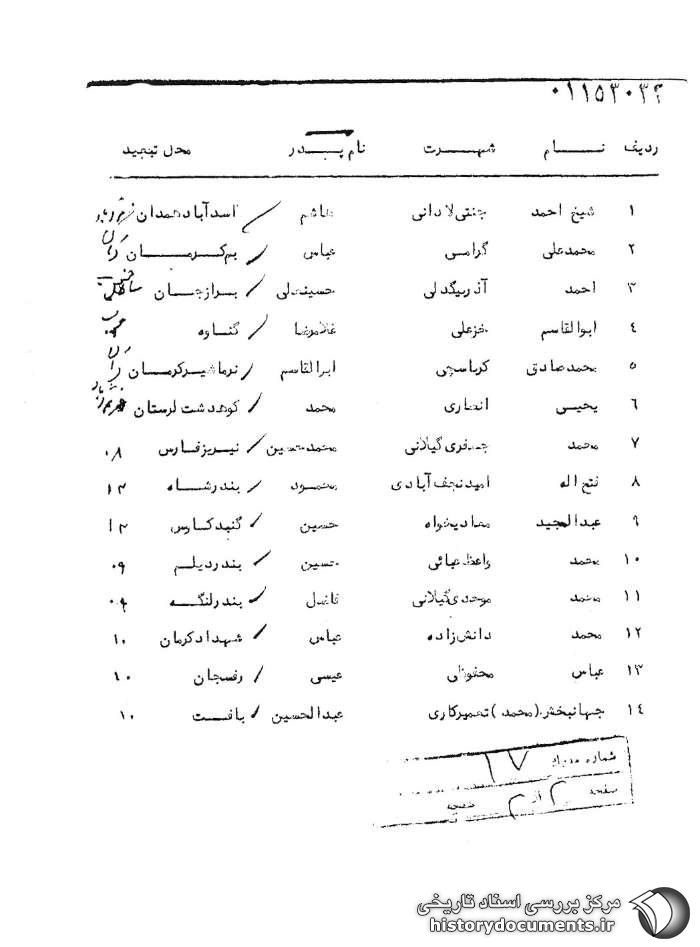 ۰۱۱۵۳۰۳۴
ردیف نام شهرت نام پدر محل تبعید
۱ شیخ احمد جنتی لادانی هاشم اسدآباد همدان
۲ محمدعلی گرامی عباس بم کرمان
۳ احمد آذربیگدلی حسینعلی برازجان
۴ ابوالقاسم خزعلی غلامرضا گناوه
۵ محمدصادق کرباسچی ابوالقاسم نرماشیر کرمان
۶ یحیی انصاری محمد کوهدشت لرستان
۷ محمد جعفری گیلانی محمدحسین نیریز فارس ۰۸
۸ فتح اله امید نجف آبادی محمود بندرشاه ۱۲
۹ عبدالمجید معادیخواه حسین گنبد کاوس ۱۲
۱۰ محمد واعظ عبائی حسین بندر دیلم ۰۹
۱۱ محمد موحدی گیلانی فاضل بندر لنگه ۰۹
۱۲ محمد دانش زاده عباس شهداد کرمان ۱۰
۱۳ عباس محفوظی عیسی رفسجان ۱۰
۱۴ جهانبخش (محمد) تعمیرکاری عبدالحسین بافت ۱۰
شماره مدرک ۱۷
صفحه ۲ از ۲ صفحه
مرکز بررسی اسناد تاریخی
historydocuments.ir